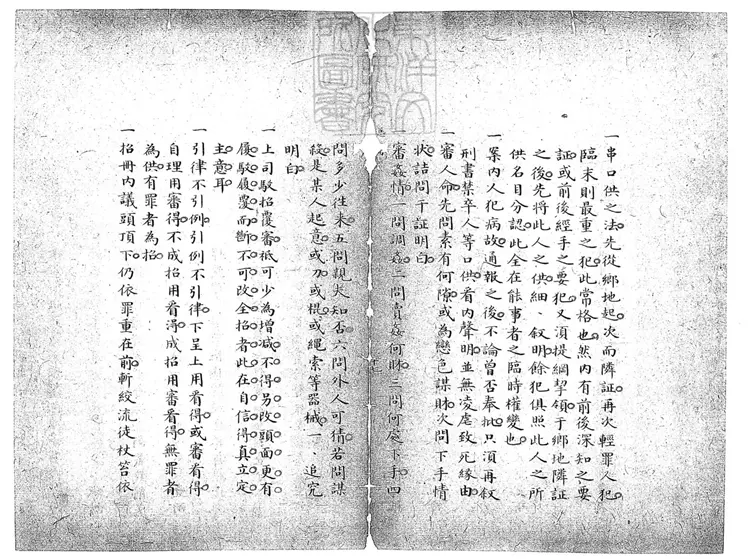 一串口供之法先從鄉地起次而隣証再次輕罪人犯
臨末則最重之犯此常格也然内有前後深知之要
証或前後經手之要犯又須提綱挈領于鄉地隣証
之後先將此人之供細叙明餘犯俱照此人之所
供名目分認此全在能事者之臨時權變也
一案内人犯病故通報之後不論曾否奉批只須再叙
刑書禁卒人等口供看内聲明並無凌虐致死緣由
一審人命先問素有何隙或為戀色謀財次問下手情
狀詰問干証明白
一審姦情一問調姦二問賣姦何財三問何處下手四
問多少往来五問親夫知否六問外人可猜若問謀
殺是某人起意或刀或棍或繩索等器械一一追究
明白
一上司駁招覆審祗可少為增減不得另改頭面更有
屢駁屢覆而斷不可改全招者此在自信得真立定
主意耳
一引律不引例引例不引律下呈上用看得或審看得
自理用審得不成招用看得成招用審看得無罪者
為供有罪者為招
一招冊内議頭頂下仍依罪重在前斬絞流徒杖笞依